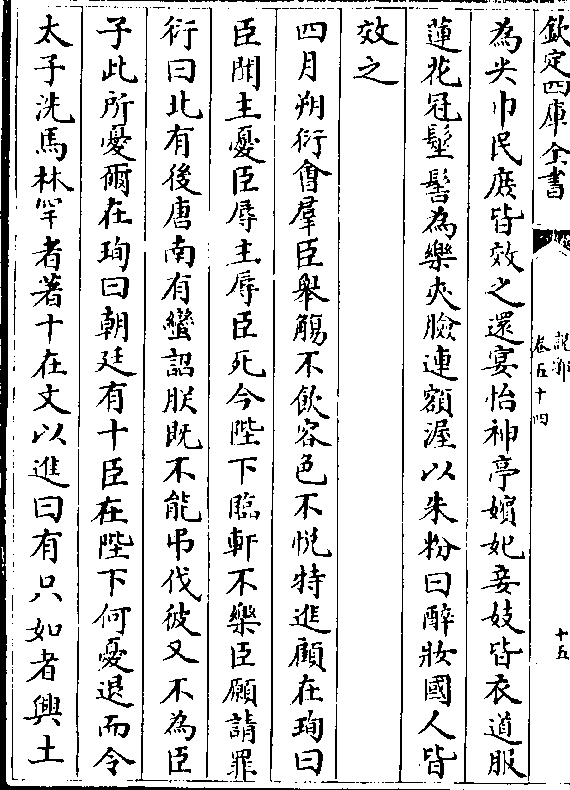 欽定四庫全書
說郛
卷五十四
十五
為尖巾民庶皆效之還宴怡神亭嬪妃妾妓皆衣道服
蓮花冠髽髻為樂夾臉連額渥以朱粉曰醉妝國人皆
效之
四月朔衍會羣臣舉觴不飲容色不悅特進顧在珣曰
臣聞主憂臣辱主辱臣死今陛下臨軒不樂臣願請罪
衍曰北有後唐南有蠻詔朕既不能弔伐彼又不為臣
子此所憂爾在珣曰朝廷有十臣在陛下何憂退而令
太子洗馬林罕者著十在文以進曰有只如者興土